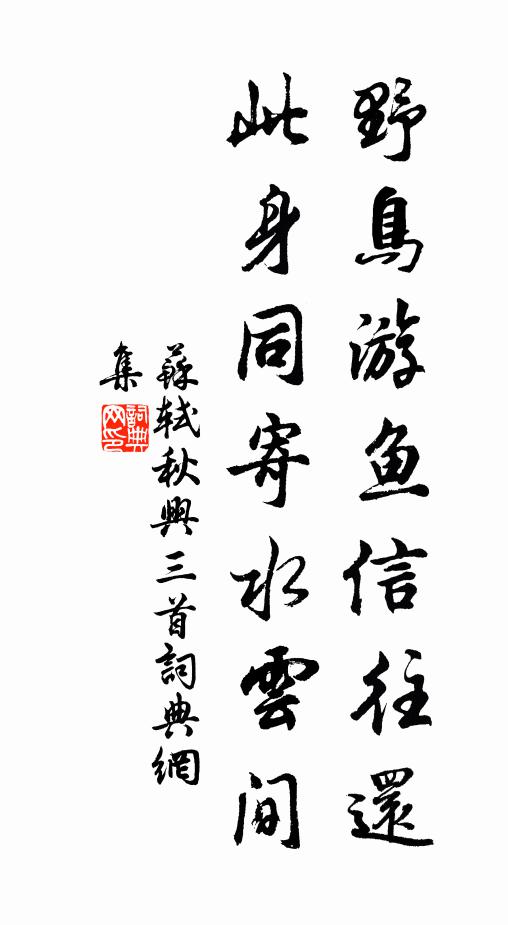 野鳥游魚信往還
此身同寄水雲間
蘇軾秋興三首詞典網
集
詞典
网印